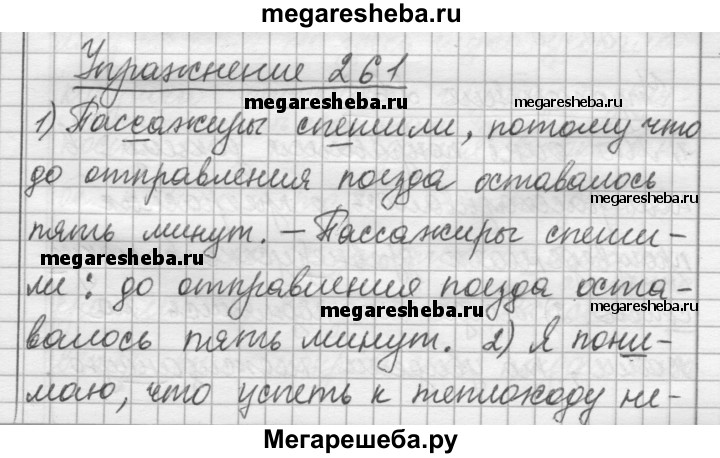 megaresheba.ru
Упражнение 261
megaresheba.ru
megaresheba.ru
1) Пассажиры спешили, потому что
до отправления поезда оставалось
megaresheba.ru
пять минут. – Пассажиры спеши-
megaresheba.ru
ли: до отправления поезда оста-
megaresheba.ru
валось пять минут. 2) Я пони-
маю, что успеть к теплоходу не-
Мегарешеба.ру